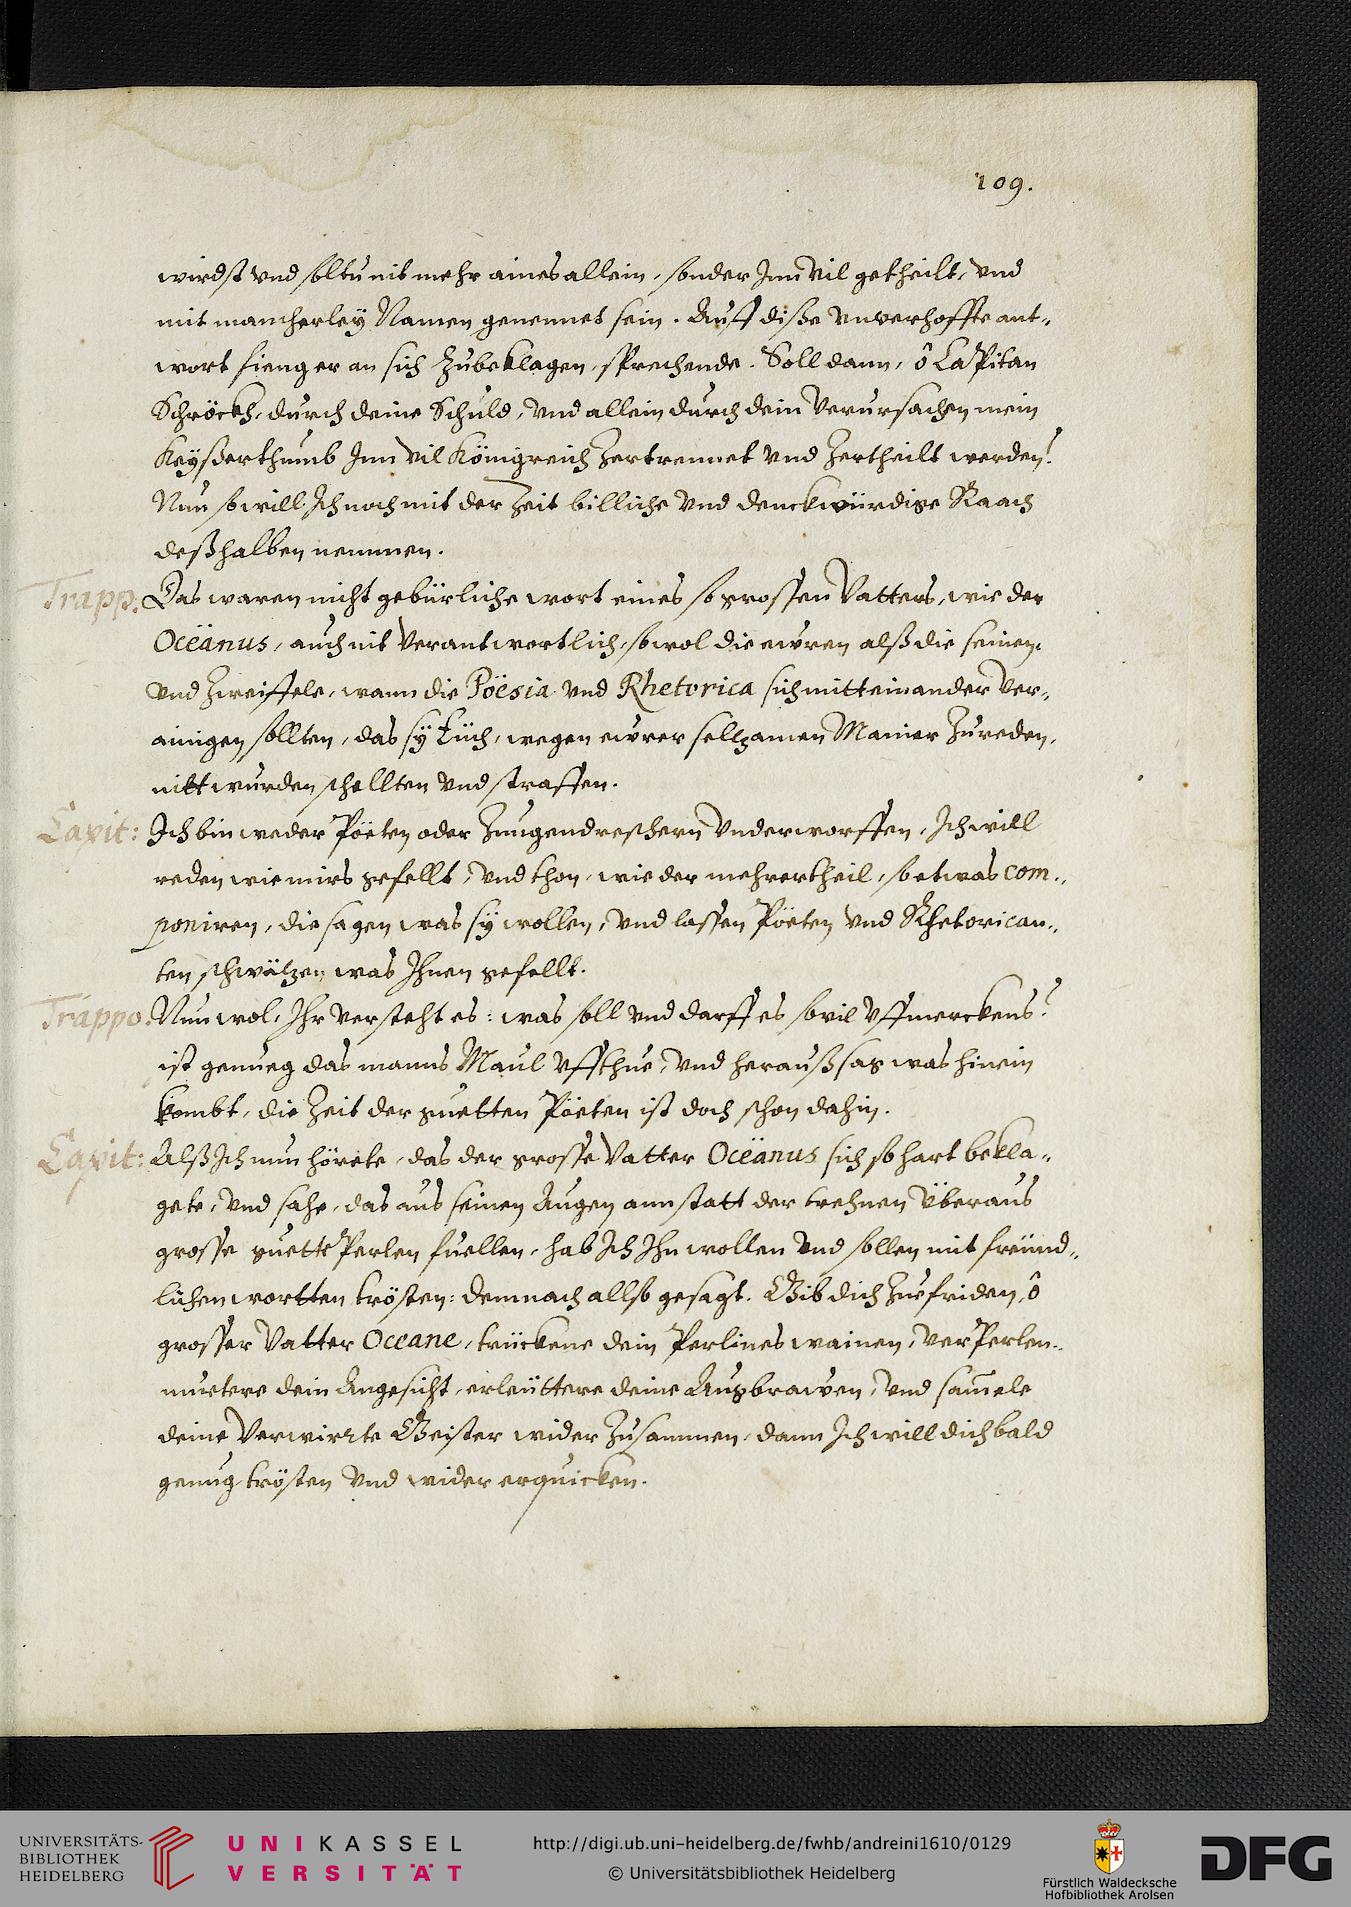 109.
wirdst vnd soltu nit mehr aines allein, sonder Jnn vil getheilt, vnd
mit mancherleÿ Namen genennet sein. Auff diße vnverhoffte ant-,
wort fieng er an sich Zubeklagen, sprechende. Soll dann, ô Capitan
Schröckh, durch deine Schuld, vnd allein durch dein Verursachen mein
Keÿßerthumb Jnn vil Königreich Zertrennet vnd Zertheilt werden?
Nun so will Jch noch mit der Zeit billiche vnd denckwürdige Raach
deßhalben nemmen.
Trapp: Das waren nicht gebürliche wort eines so grossen Vatters, wie der
Oceänus, auch nit Verantwortlich, sowol die ewren alß die seinen.
vnd Zweiffele, wann die Poësia vnd Rhetorica sich mitteinander Ver-,
ainigen sollten, das sÿ Eüch, wegen ewrer sellzamen Manier Zureden,
nitt wurden schellten vnd straffen.
Capit: Jch bin weder Pöeten oder Zungendreschern Vnderworffen, Jch will
reden wie mirs gefellt, vnd thon, wie der mehrertheil, so etwas com-,
poniren, die sagen was sÿ wollen, vnd lassen Pöeten vnd Rhetorican-,
ten schwätzen was Jhnen gefellt.
Trappo: Nun wol, Jhr versteht es: was soll vnd darff es sovil Vffmerckens?
ist genueg das manns Maul Vffthue, vnd heraußsag was hinein
kombt, die Zeit der guetten Pöeten ist doch schon dahin.
Capit: Alß Jch nun hörete, das der grosse Vatter Oceänus sich so hart bekla-,
gete, vnd sahe, das aus seinen Augen ann statt der trehnen Überaus
grosse guette Perlen fuellen, hab Jch Jhn wollen vnd sollen mit freünd-,
lichen wortten trösten: demnach allso gesagt. Gib dich Zuefriden, ô
grosser Vatter Oceane, trückene dein Perlines wainen, VerPerlen-,
muetere dein Angesicht, erleüttere deine Augbrawen, vnd sam̄ele
deine Verwirrte Geister wider Zusammen, dann Jch will dich bald
genug trösten vnd wider erquicken.
UNIVERSITÄTS-
BIBLIOTHEK
HEIDELBERG
UNIKASSEL
VERSITÄT
http://digi.ub.uni-heidelberg.de/fwhb/andreini1610/0129
© Universitätsbibliothek Heidelberg
Fürstlich Waldecksche
Hofbibliothek Arolsen
DFG